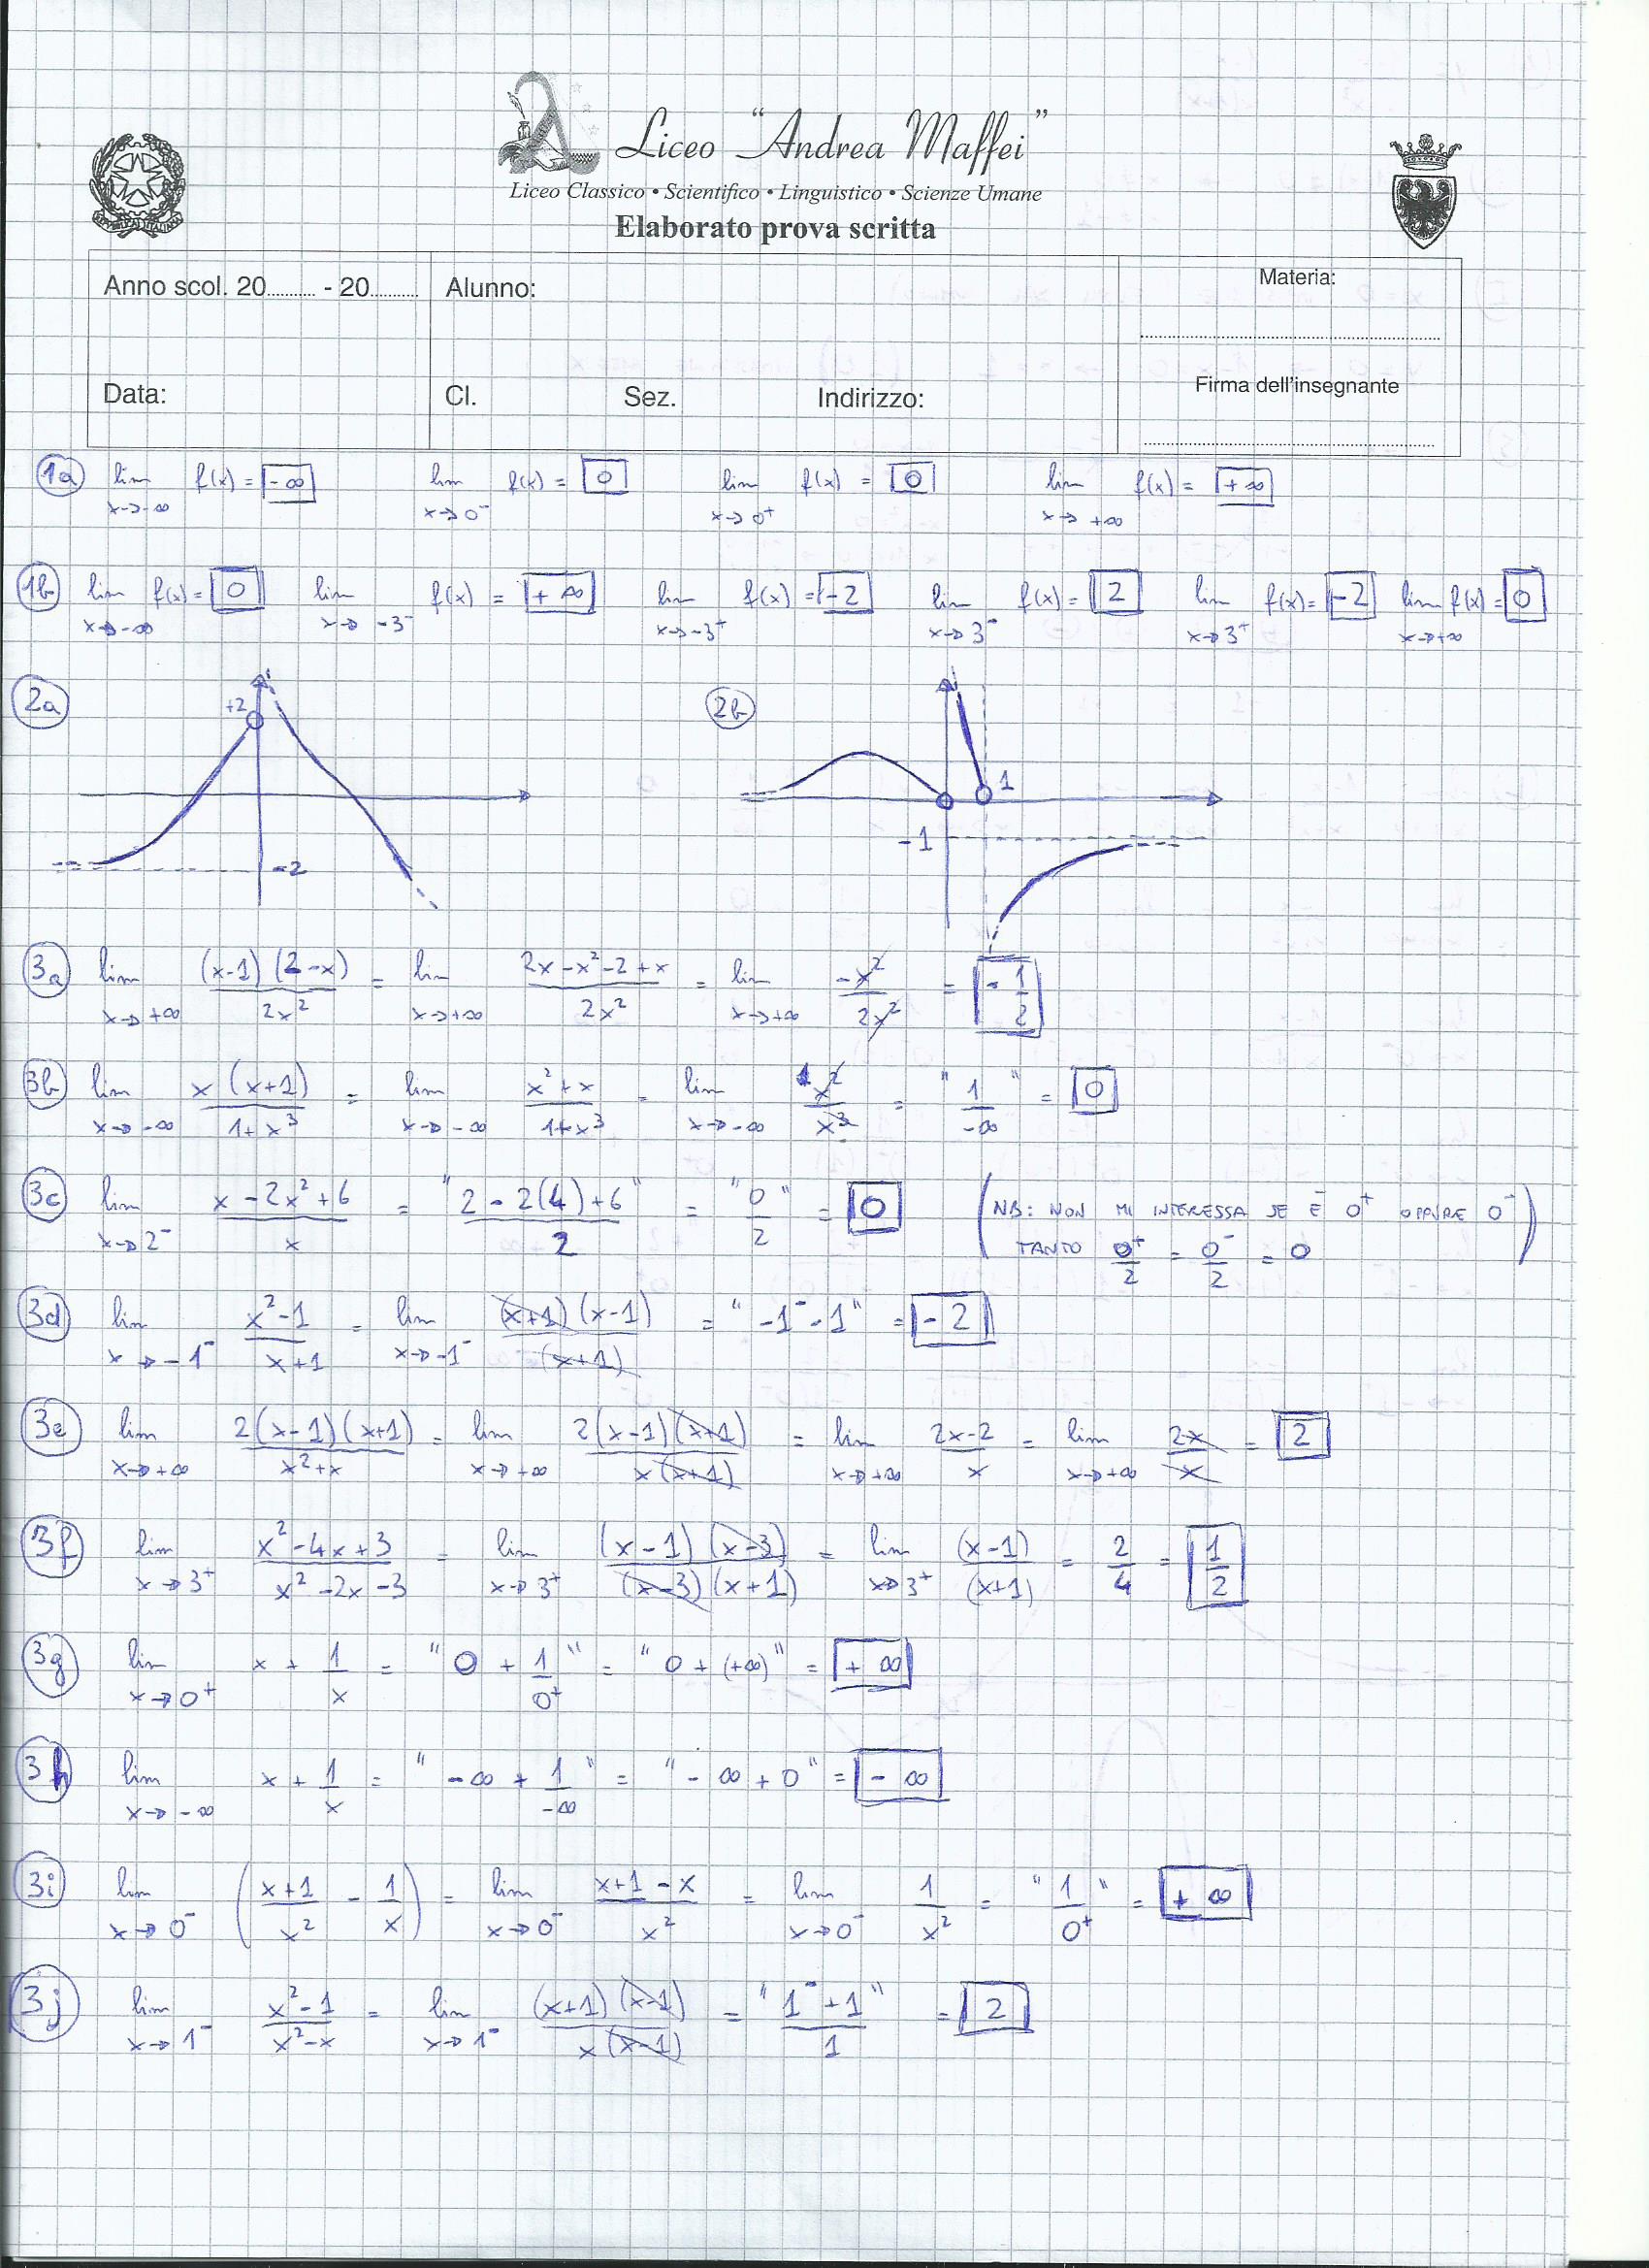 Liceo "Andrea Maffei"
Liceo Classico • Scientifico • Linguistico • Scienze Umane
Elaborato prova scritta
Anno scol. 20.......... - 20.......... Alunno: Materia:
Firma dell'insegnante
Data: Cl. Sez. Indirizzo:
1a lim x→-∞ f(x) = -∞ lim x→0⁻ f(x) = 0 lim x→0⁺ f(x) = 0 lim x→+∞ f(x) = +∞
1b lim x→-∞ f(x) = 0 lim x→-3⁻ f(x) = +∞ lim x→-3⁺ f(x) = -2 lim x→3⁻ f(x) = 2 lim x→3⁺ f(x) = -2 lim x→+∞ f(x) = 0
2a +2 -2
2b 1 -1
3a lim x→+∞ (x-1)(2-x)/2x² = lim x→+∞ (2x-x²-2+x)/2x² = lim x→+∞ -x²/2x² = -1/2
3b lim x→-∞ x(x+1)/(1+x³) = lim x→-∞ (x²+x)/(1+x³) = lim x→-∞ 1x²/x³ = "1/-∞" = 0
3c lim x→2⁻ (x-2x²+6)/x = "(2-2(4)+6)/2" = "0"/2 = 0 (NB: NON MI INTERESSA SE È 0⁺ OPPURE 0⁻
TANTO 0⁺/2 = 0⁻/2 = 0)
3d lim x→-1⁻ (x²-1)/(x+1) = lim x→-1⁻ (x+1)(x-1)/(x+1) = "-1⁻-1" = -2
3e lim x→+∞ 2(x-1)(x+1)/(x²+x) = lim x→+∞ 2(x-1)(x+1)/x(x+1) = lim x→+∞ (2x-2)/x = lim x→+∞ 2x/x = 2
3f lim x→3⁺ (x²-4x+3)/(x²-2x-3) = lim x→3⁺ (x-1)(x-3)/(x-3)(x+1) = lim x→3⁺ (x-1)/(x+1) = 2/4 = 1/2
3g lim x→0⁺ x + 1/x = "0 + 1/0⁺" = "0 + (+∞)" = +∞
3h lim x→-∞ x + 1/x = "-∞ + 1/-∞" = "-∞ + 0" = -∞
3i lim x→0⁻ ((x+1)/x² - 1/x) = lim x→0⁻ (x+1-x)/x² = lim x→0⁻ 1/x² = "1/0⁺" = +∞
3j lim x→1⁻ (x²-1)/(x²-x) = lim x→1⁻ (x+1)(x-1)/x(x-1) = "(1⁻+1)"/1 = 2